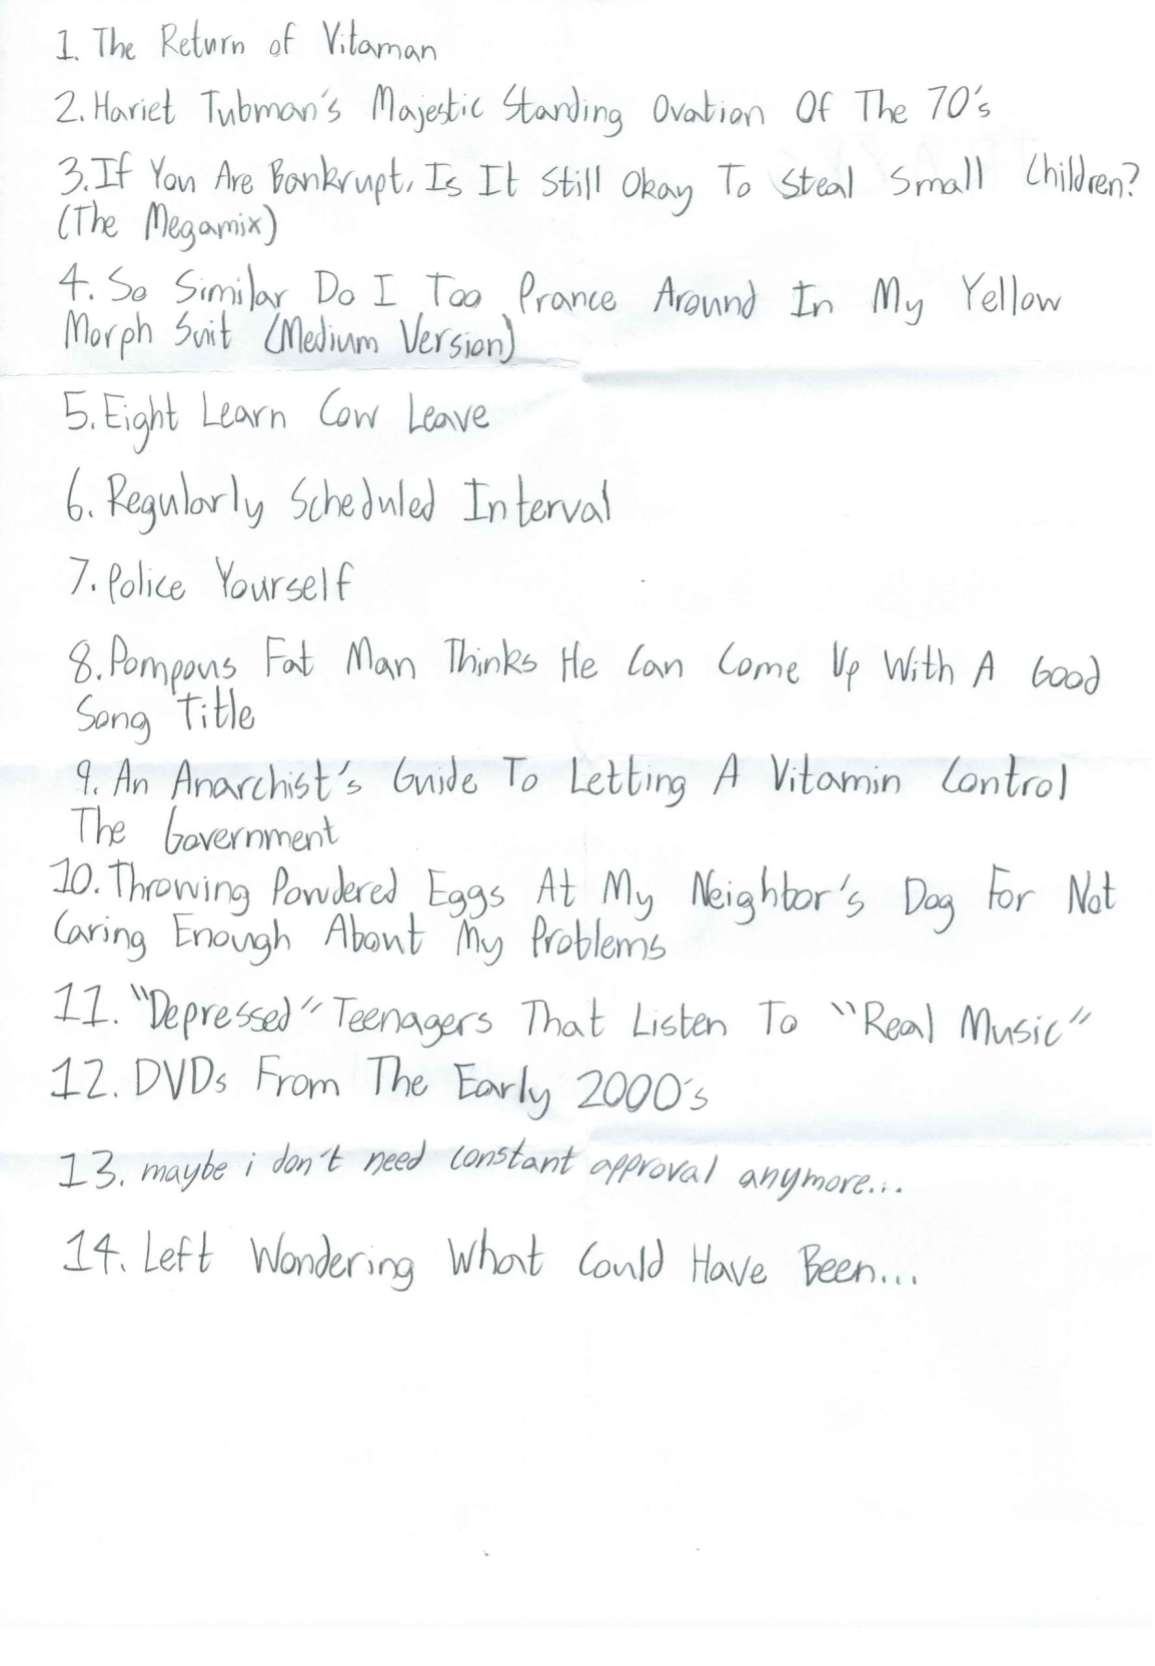 1. The Return of Vitaman
2. Hariet Tubman's Majestic Standing Ovation Of The 70's
3. If You Are Bankrupt, Is It Still Okay To Steal Small Children?
(The Megamix)
4. So Similar Do I Too Prance Around In My Yellow
Morph Suit (Medium Version)
5. Eight Learn Cow Leave
6. Regularly Scheduled Interval
7. Police Yourself
8. Pompous Fat Man Thinks He Can Come Up With A Good
Song Title
9. An Anarchist's Guide To Letting A Vitamin Control
The Government
10. Throwing Powdered Eggs At My Neighbor's Dog For Not
Caring Enough About My Problems
11. "Depressed" Teenagers That Listen To "Real Music"
12. DVDs From The Early 2000's
13. maybe i don't need constant approval anymore...
14. Left Wondering What Could Have Been...